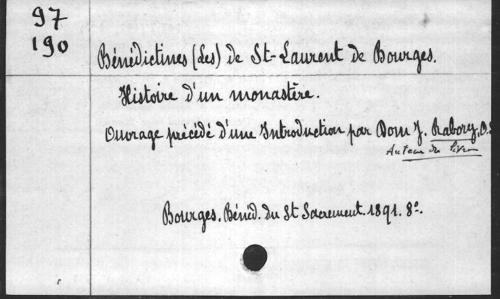 97
190
Bénédictines (Les) de St-Laurent de Bourges.
Histoire d'un monastère.
Ouvrage précédé d'une Introduction par Dom J. Rabory, O.
Auteur du
Bourges. Bénéd. du St Sacrement. 1891. 8°.